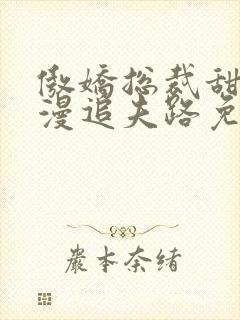 傲娇总裁甜
漫追夫路免
岩本奈绪